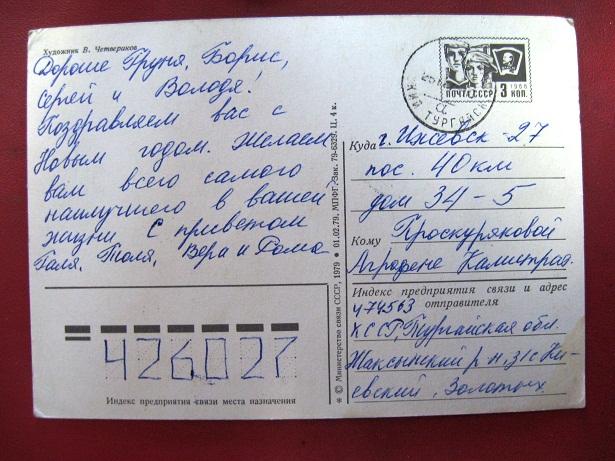 Художник В. Четвериков
Дорогие Груня, Борис,
Сергей и Володя!
Поздравляем вас с
Новым годом. Желаем
вам всего самого
наилучшего в вашей
жизни С приветом
Галя, Толя, Вера и Рома
426027
Индекс предприятия связи места назначения
© Министерство связи СССР, 1979 ● 01.02.79. МПФГ. Зак. 79-6329. Ц. 4 к.
ПОЧТА СССР 3 КОП.
1966
Куда г. Ижевск-27
пос. 40 км
дом 34-5
Кому Проскуряковой
Агрофене Калистрат.
Индекс предприятия связи и адрес
отправителя
474563
КССР, Тургайская обл.
Жаксынский р-н, з/с Ки-
евский, Золотых